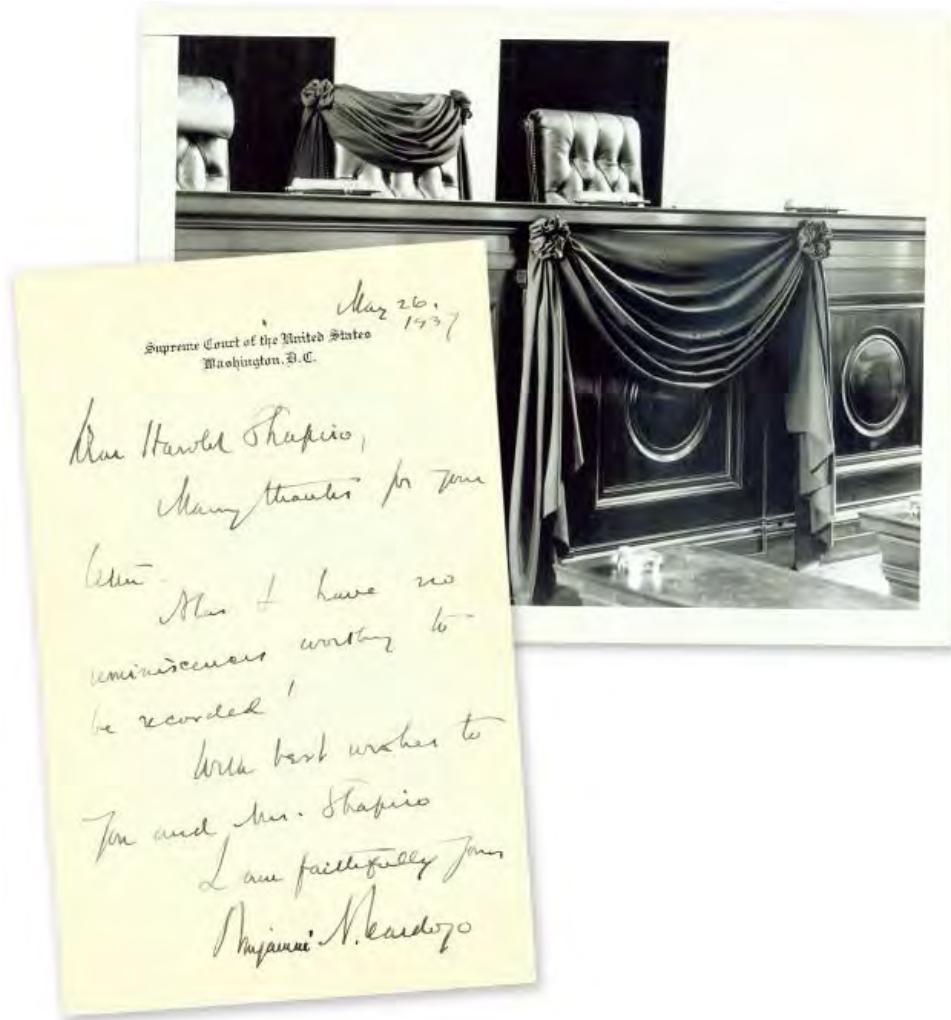 May 26.
1937
Supreme Court of the United States
Washington, D.C.
Dear Harold Shapiro,
Many thanks for your
letter.
Alas I have no
reminiscences worthy to
be recorded!
With best wishes to
you and Mrs. Shapiro
I am faithfully yours
Benjamin N. Cardozo